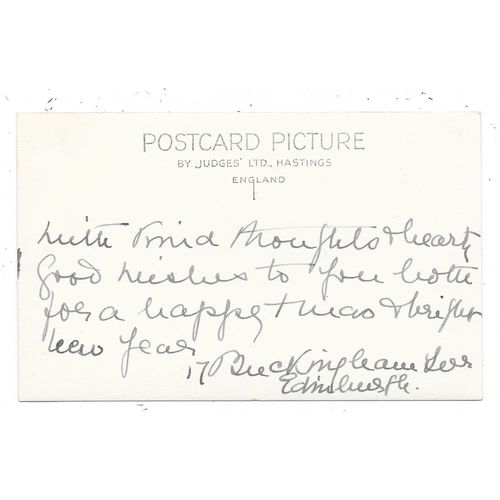 POSTCARD PICTURE
BY JUDGES' LTD., HASTINGS
ENGLAND
With kind thoughts & hearty
good wishes to you both
for a happy Xmas & bright
new year
17 Buckingham Terr
Edinburgh.